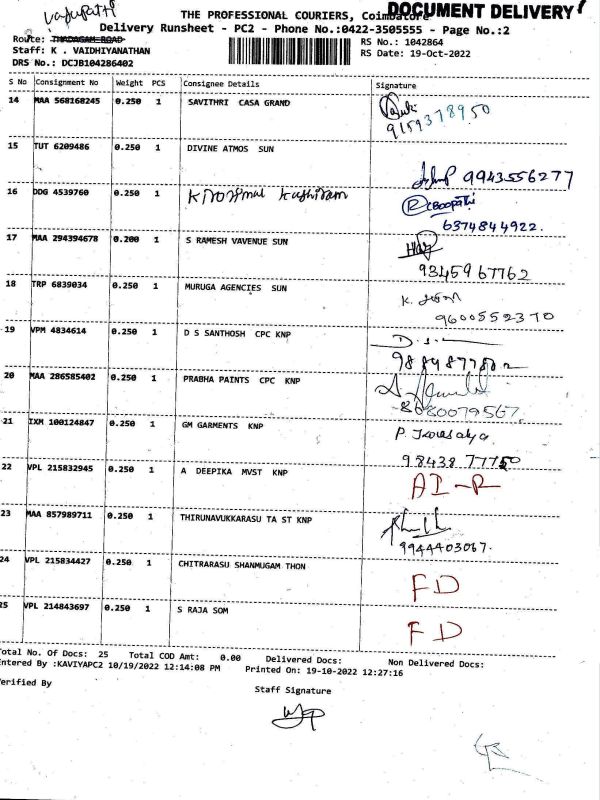 THE PROFESSIONAL COURIERS, Coimbatore
DOCUMENT DELIVERY
Delivery Runsheet - PC2 - Phone No.:0422-3505555 - Page No.:2
Route: THADAGAM ROAD
RS No.: 1042864
Staff: K . VAIDHIYANATHAN
RS Date: 19-Oct-2022
DRS No.: DCJB104286402
S No Consignment No Weight PCS Consignee Details Signature
14 MAA 568168245 0.250 1 SAVITHRI CASA GRAND
9159378950
15 TUT 6209486 0.250 1 DIVINE ATMOS SUN
9943556277
16 DDG 4539760 0.250 1 Kiroshmal Kashiram
6374844922.
17 MAA 294394678 0.200 1 S RAMESH VAVENUE SUN
9345967762
18 TRP 6839034 0.250 1 MURUGA AGENCIES SUN
9600552370
19 VPM 4834614 0.250 1 D S SANTHOSH CPC KNP
20 MAA 286585402 0.250 1 PRABHA PAINTS CPC KNP
8680079567.
21 IXM 100124847 0.250 1 GM GARMENTS KNP
98438 77750
22 VPL 215832945 0.250 1 A DEEPIKA MVST KNP
AI-R
23 MAA 857989711 0.250 1 THIRUNAVUKKARASU TA ST KNP
9944403067.
24 VPL 215834427 0.250 1 CHITRARASU SHANMUGAM THON
FD
25 VPL 214843697 0.250 1 S RAJA SOM
FD
Total No. Of Docs: 25 Total COD Amt: 0.00 Delivered Docs: Non Delivered Docs:
Entered By :KAVIYAPC2 10/19/2022 12:14:08 PM Printed On: 19-10-2022 12:27:16
Verified By
Staff Signature